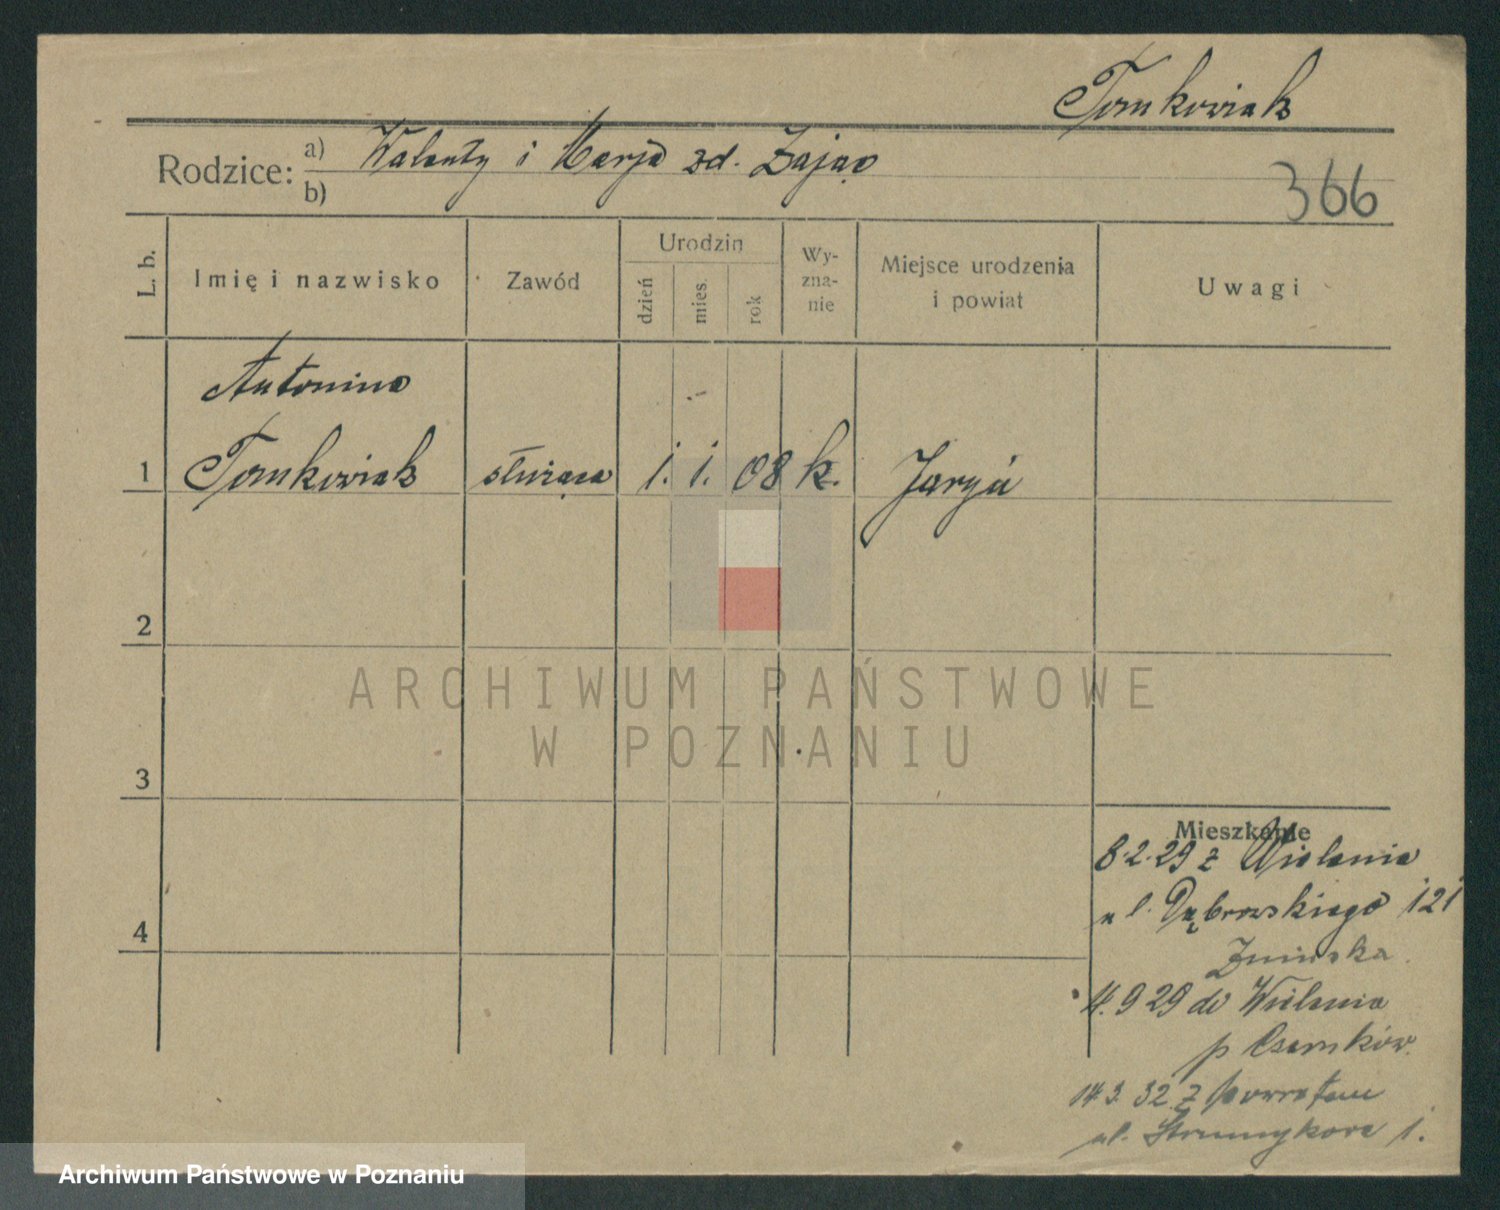 Tomkowiak
Rodzice: a) Walenty i Marja zd. Zając
b)
366
L. b.
Imię i nazwisko
Zawód
Urodzin
dzień
mies.
rok
Wy-
zna-
nie
Miejsce urodzenia
i powiat
Uwagi
Antonina
1 Tomkowiak służąca 1. 1. 08 k.
2
3
4
ARCHIWUM PAŃSTWOWE
W POZNANIU
Mieszkanie
8.2.29 z Wielenia
ul. Dąbrowskiego 121
4. 9 29 do Wielenia
p Czarnków.
14 3. 32 z powrotem
ul. Strumykowa 1.
Archiwum Państwowe w Poznaniu